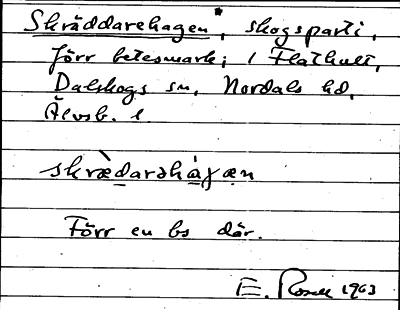 Skräddarehagen*, skogsparti,
förr betesmark; i Flathult,
Dalskogs sn, Nordals hd,
Älvsb. l
skrædarəhàgæn
Förr en bs där.
E. Rosell 1963